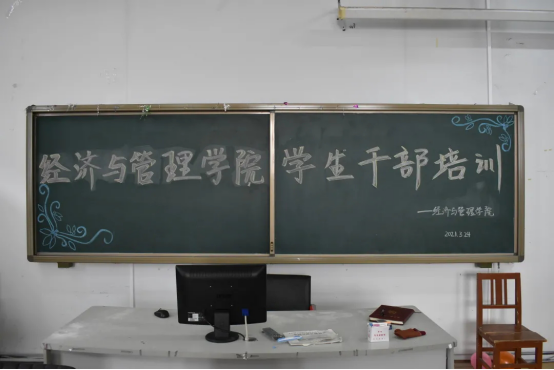 经济与管理学院 学生干部培训
——经济与管理学院
2023.3.29